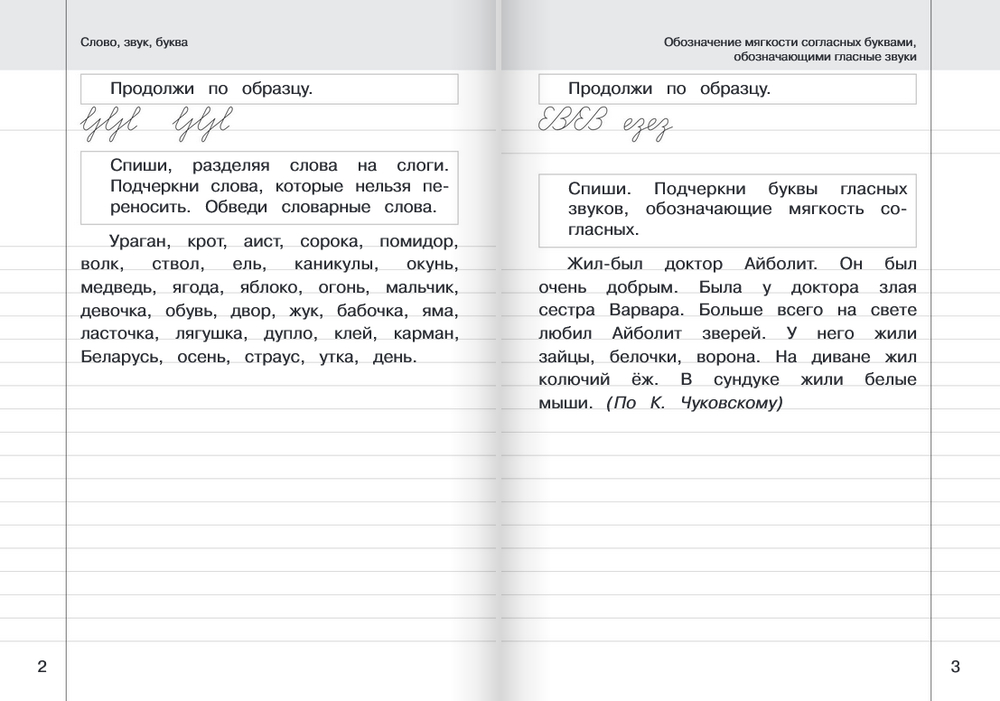 Слово, звук, буква
Продолжи по образцу.
Спиши, разделяя слова на слоги.
Подчеркни слова, которые нельзя пе-
реносить. Обведи словарные слова.
Ураган, крот, аист, сорока, помидор,
волк, ствол, ель, каникулы, окунь,
медведь, ягода, яблоко, огонь, мальчик,
девочка, обувь, двор, жук, бабочка, яма,
ласточка, лягушка, дупло, клей, карман,
Беларусь, осень, страус, утка, день.
2
Обозначение мягкости согласных буквами,
обозначающими гласные звуки
Продолжи по образцу.
ЕВЕВ езез
Спиши. Подчеркни буквы гласных
звуков, обозначающие мягкость со-
гласных.
Жил-был доктор Айболит. Он был
очень добрым. Была у доктора злая
сестра Варвара. Больше всего на свете
любил Айболит зверей. У него жили
зайцы, белочки, ворона. На диване жил
колючий ёж. В сундуке жили белые
мыши. (По К. Чуковскому)
3